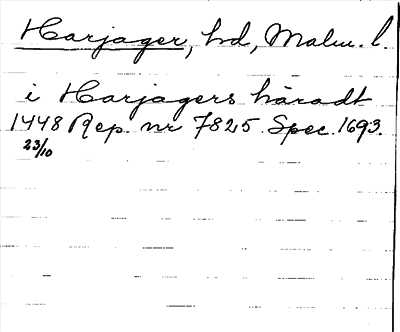 Harjager, hd, Malm. l.
i Harjagers häradt
1448 Rep. nr 7825. Spec. 1693.
23/10